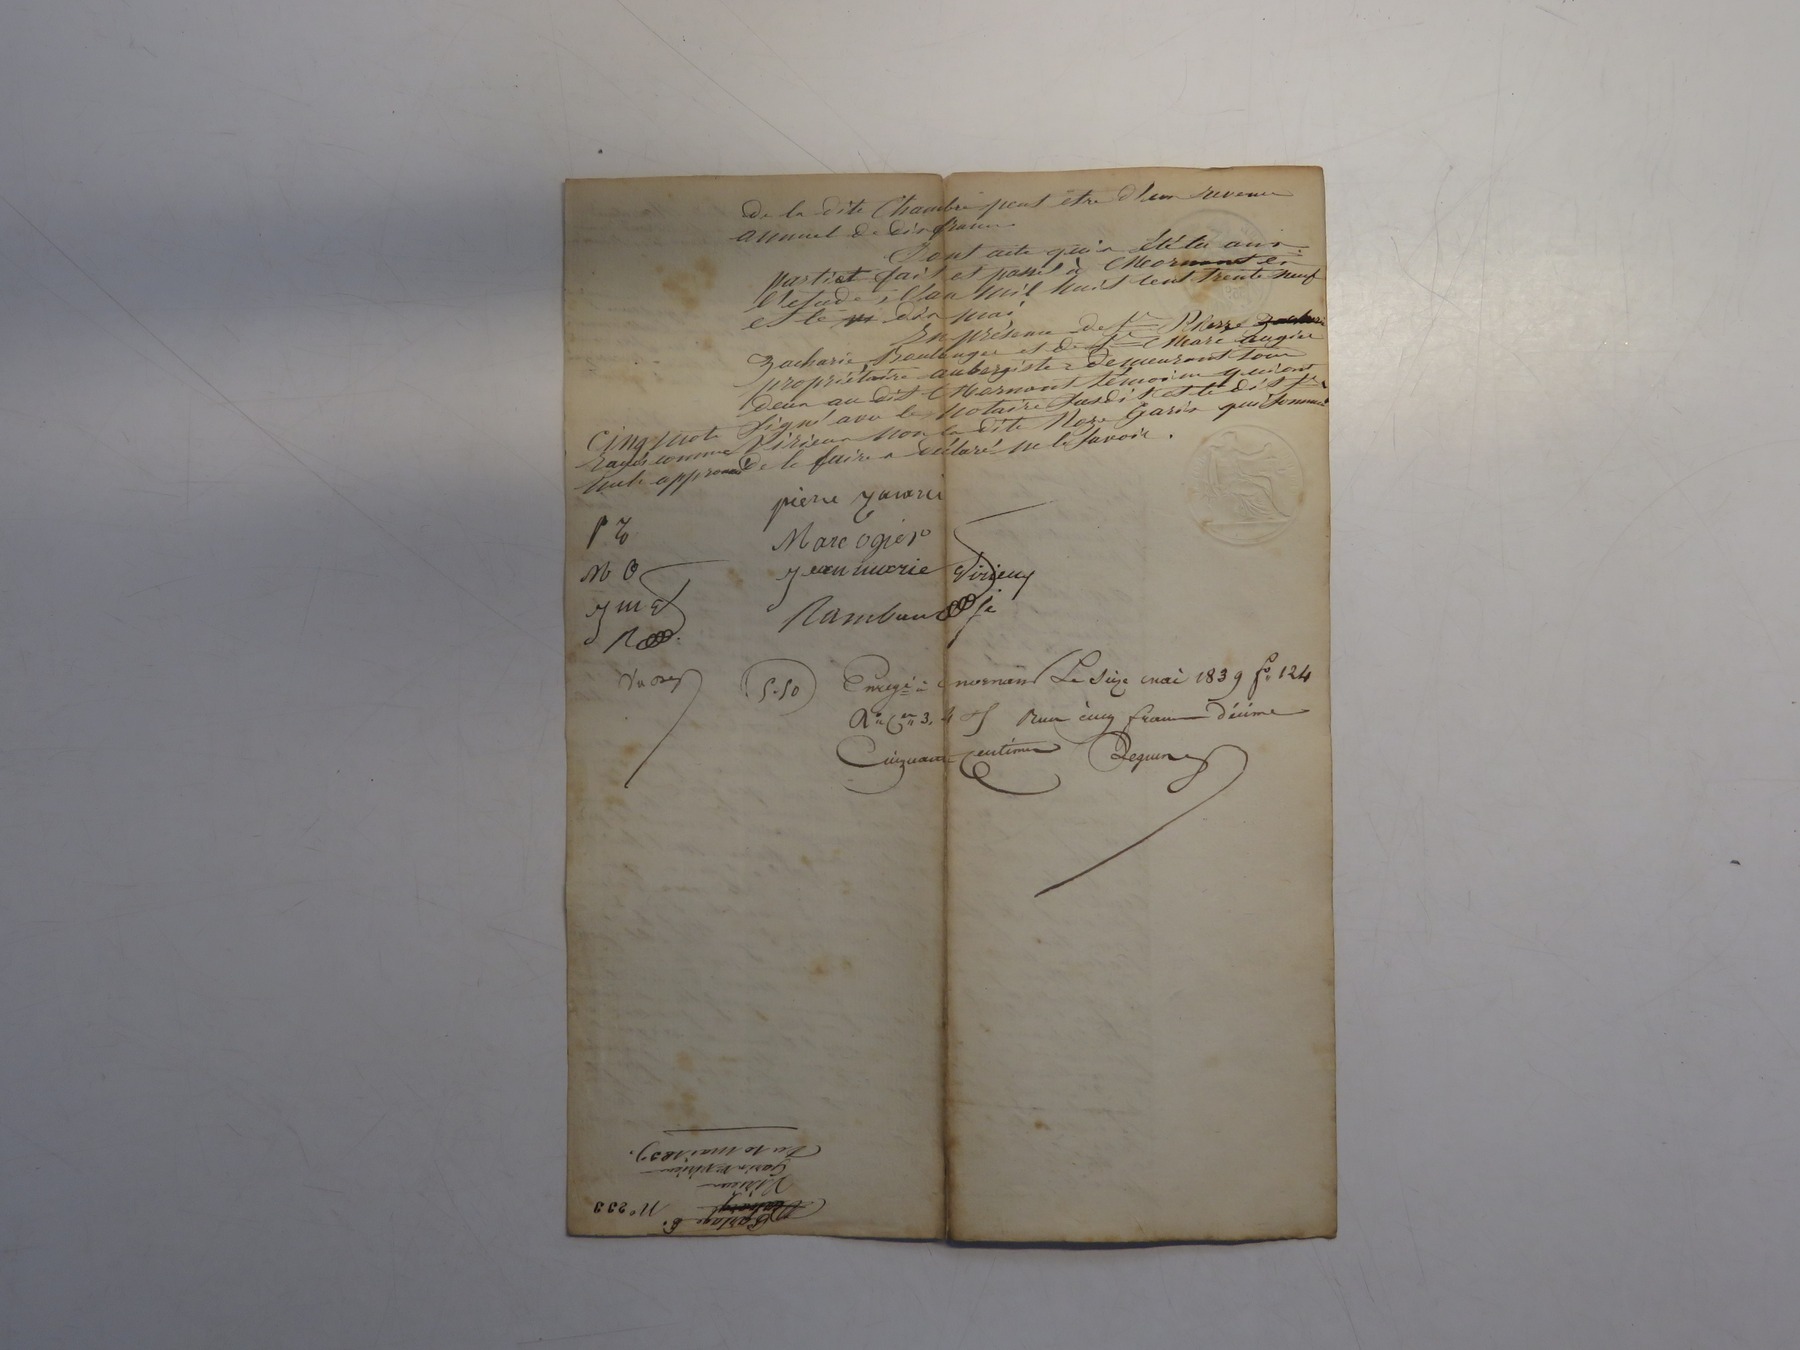 de la dite Chambre peut être d'un revenu
annuel de dix francs
Dont acte qui a été lu aux
parties fait et passé à Mornant en
l'étude, l'an mil huit cent trente neuf
et le dix mai
En présence de Sr Pierre
Zacharie Boulanger et de Sr Marc augier
propriétaire aubergiste demeurant tous
deux au dit Mornant témoins qui ont
signé avec le notaire susdit et le dit
Virieux non la dite Garin qui sommée
de le faire a déclaré ne le savoir.
Cinq mots
rayés comme
nuls approuvé
pierre zacari
Marc ogier
jean marie Virieux
Rambaud
P Z
M O
j m V
R
5-50
Enregé à mornant Le seize mai 1839 fo 124
Ro Cen 3, 4 Reçu cinq francs décime
Cinquante Centimes
Partage
Virieux
Garin Ve Virieux
Du 10 mai 1839.
N° 233